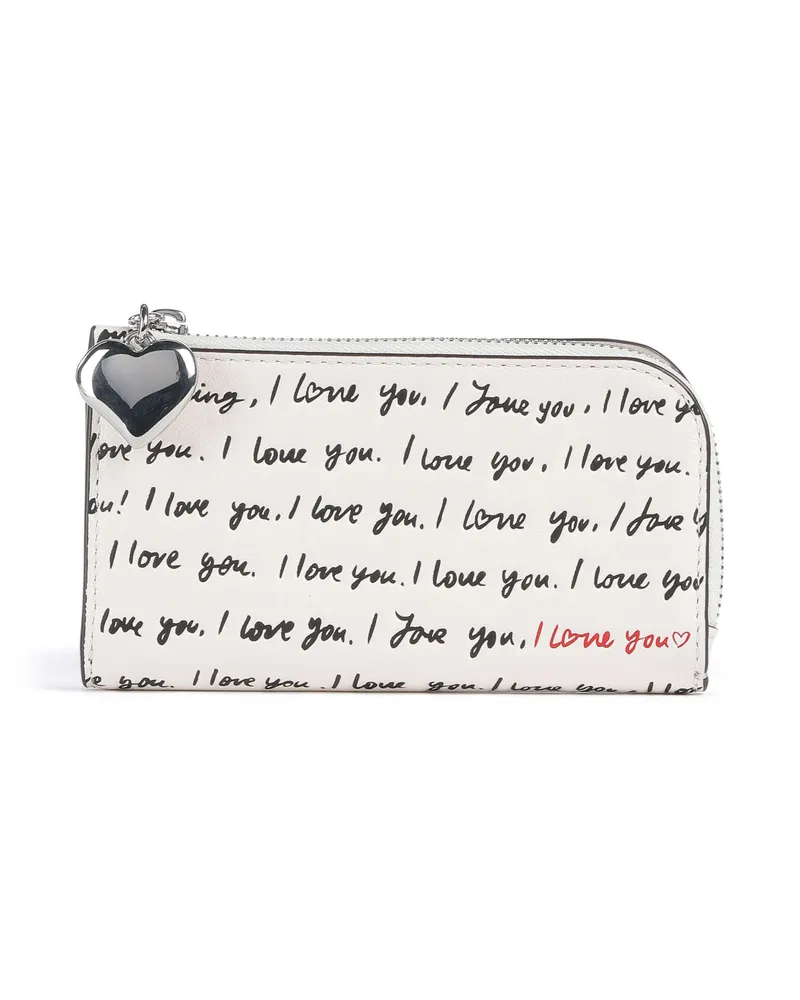 I love you. I love you. I love
love you. I love you. I love you. I love you.
I love you. I love you. I love you. I love
I love you. I love you. I love you. I love you
love you. I love you. I love you. I love you♡
you. I love you. I love you. I love you.